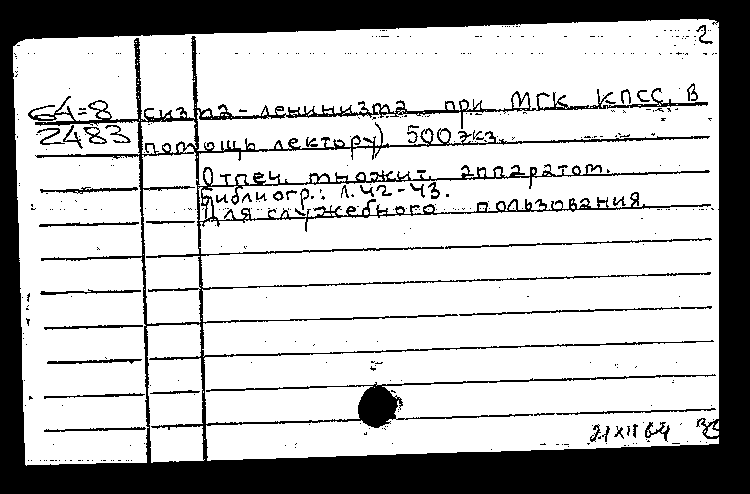 2
64=8 сизма-ленинизма при МГК КПСС. В
2483 помощь лектору). 500 экз.
Отпеч. множит. аппаратом.
Библиогр.: л. 42-43.
Для служебного пользования.
21 XII 64